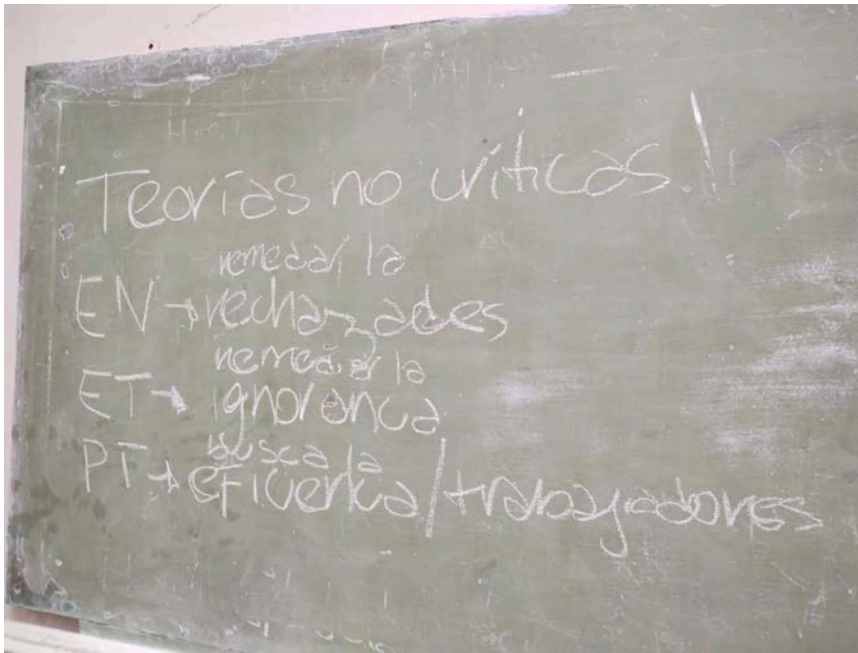 Teorías no críticas!
remediar la
EN → rechazades
remediar la
ET → ignorancia
busca la
PT → eficiencia/trabajadores